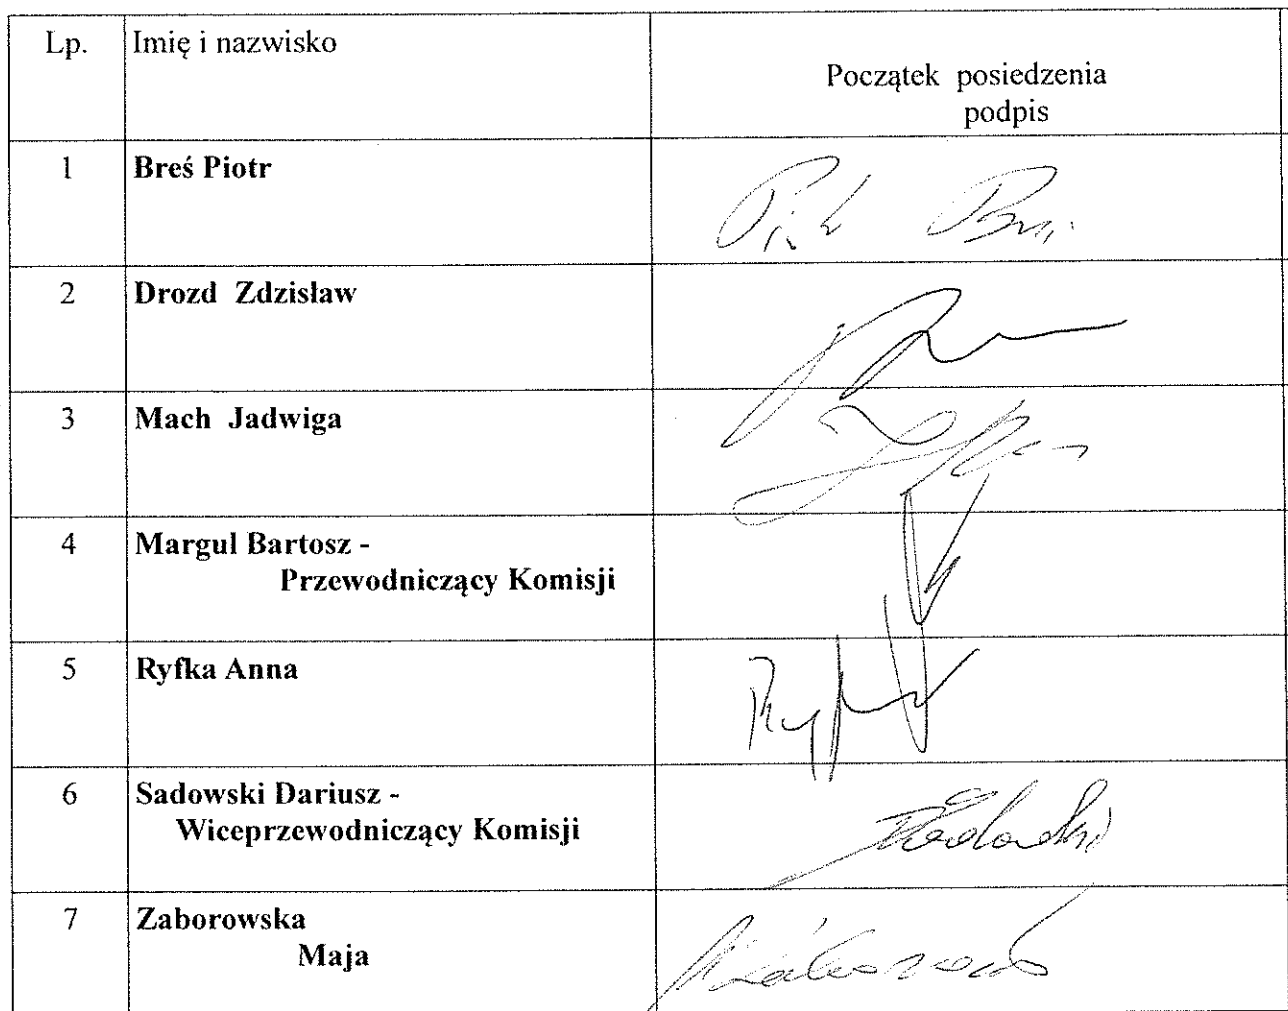 Lp.
Imię i nazwisko
Początek posiedzenia
podpis
1
Breś Piotr
2
Drozd Zdzisław
3
Mach Jadwiga
4
Margul Bartosz -
Przewodniczący Komisji
5
Ryfka Anna
6
Sadowski Dariusz -
Wiceprzewodniczący Komisji
7
Zaborowska
Maja